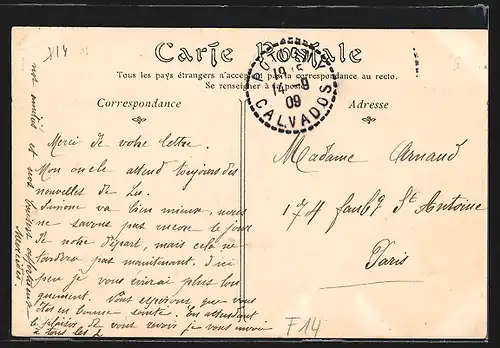 Carte Postale
Tous les pays étrangers n'acceptent pas la correspondance au recto.
Se renseigner à la poste
Correspondance
Adresse
14 - 9
09
CALVADOS
Merci de votre lettre.
Mon oncle attend toujours des
nouvelles de
va bien mieux, nous
ne savons pas encore le jour
de notre départ, mais cela ne
tardera pas maintenant. D'ici
peu je vous écrirai plus lon
guement. Nous espérons que vous
êtes en bonne santé. En attendant
le plaisir de vous revoir je vous envoie
à tous les 2
nos amitiés et nos
Madame Arnaud
174 faubg St Antoine
Paris
F14